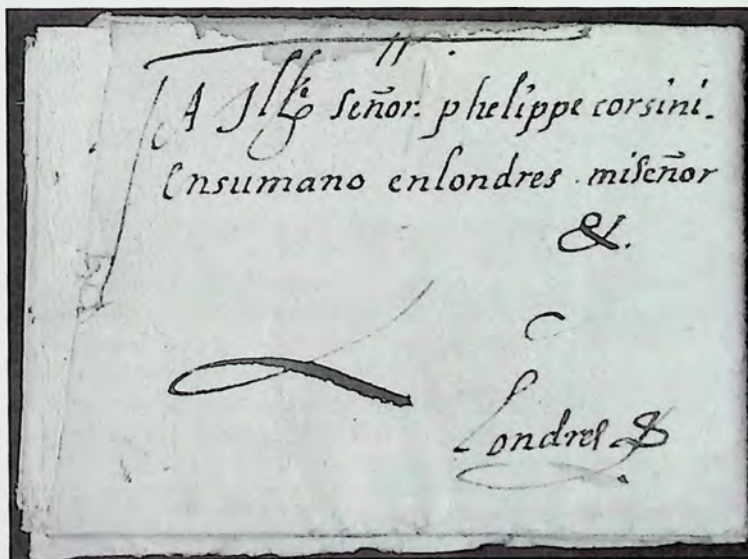 A Ill.e señor. phelippe corsini.
Ensumano enlondres. miseñor
&.
Londres &